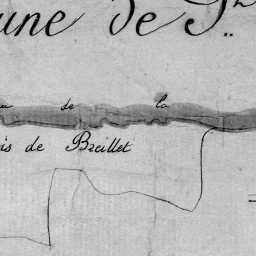 une de St.
de la
is de Breillet